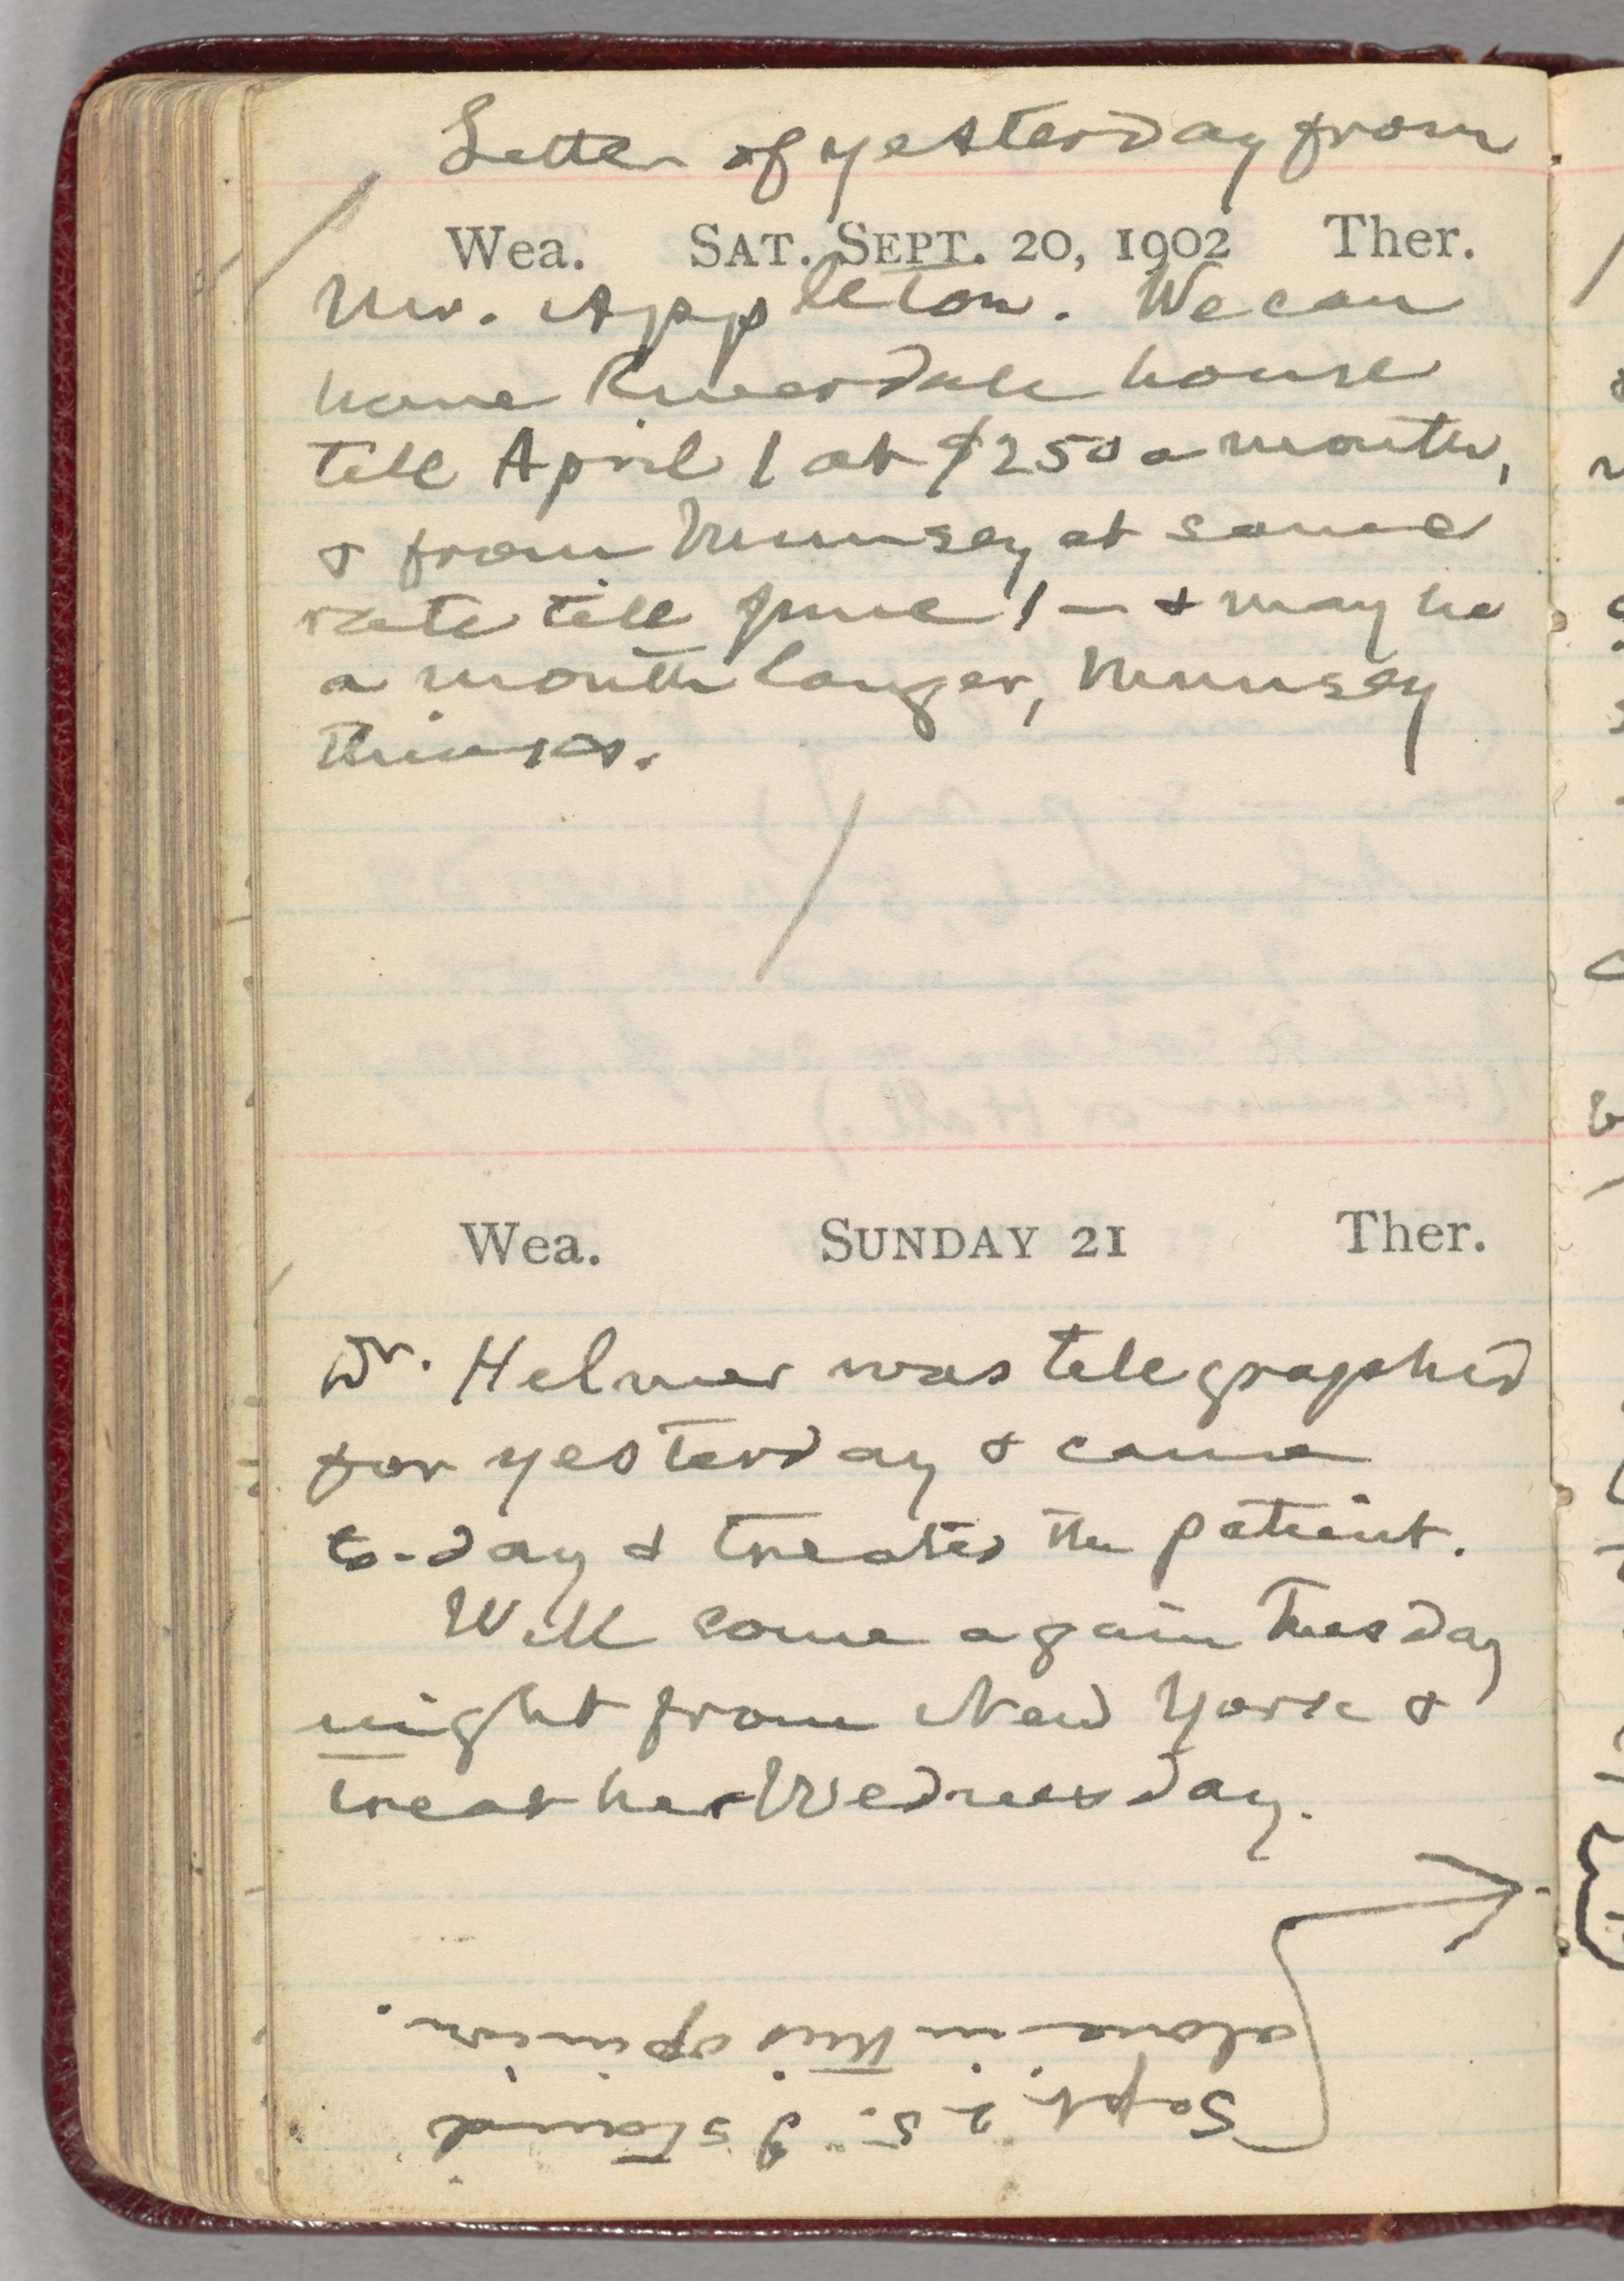 Letter of yesterday from
Wea. SAT. SEPT. 20, 1902 Ther.
Mr. Appleton. We can
have Riverdale house
till April 1 at $250 a month,
& from Munsey at same
rate till June 1 — & maybe
a month longer, Munsey
thinks.
Wea. SUNDAY 21 Ther.
Dr. Helmer was telegraphed
for yesterday & came
to-day & treated the patient.
Will come again Tuesday
night from New York &
treat her Wednesday.
Sept. 25. I stand
alone in this opinion.